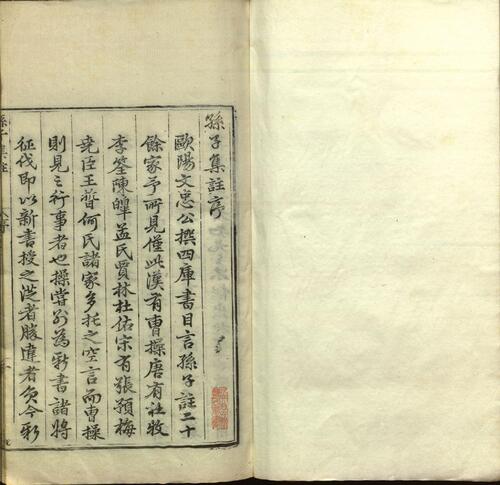 孫子集註序
歐陽文忠公撰四庫書目言孫子註二十
餘家予所見僅此漢有曹操唐有杜牧
李筌陳皥孟氏賈林杜佑宋有張預梅
堯臣王晳何氏諸家多托之空言而曹操
則見之行事者也操嘗別為新書諸將
征伐即以新書授之從者勝違者負今新
孫子集註